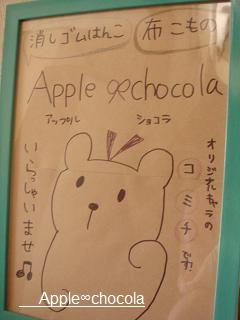 消しゴムはんこ
布こもの
Apple ∞chocola
アップル ショコラ
オリジナルキャラの
コミチです。
いらっしゃいませ♫
Apple∞chocola